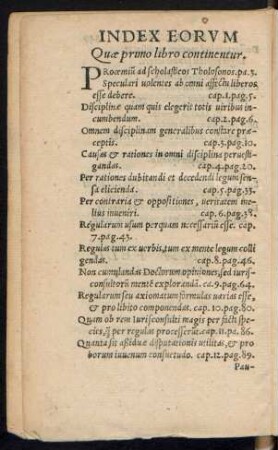 INDEX EORVM
Quæ primo libro continentur.
PRoœmiũ ad scholasticos Tholosonos. pa. 3.
Speculari uolentes ab omni affectu liberos
esse debere. cap. 1. pag. 5.
Disciplinæ quam quis elegerit totis uiribus in-
cumbendum. cap. 2. pag. 6.
Omnem disciplinam generalibus constare præ-
ceptis. cap. 3. pag. 10.
Causas & rationes in omni disciplina peruesti-
gandas. cap. 4. pag. 20.
Per rationes dubitandi et decedendi legum sen-
sa elicienda. cap. 5. pag. 33.
Per contraria & oppositiones, ueritatem me-
lius inueniri. cap. 6. pag. 38.
Regularum usum perquam necessariũ esse. cap.
7. pag. 43.
Regulas tum ex uerbis, tum ex mente legum colli
gendas. cap. 8. pag. 46.
Non cumulandas Doctorum opiniones, sed iuris-
consultorũ mentẽ explorandã. ca. 9. pag. 64.
Regularum seu axiomatum formulas uarias esse,
& pro libito componendas. cap. 10. pag. 80.
Quam ob rem Iurisconsulti magis per facti spe-
cies, q̃ per regulas processerũt. ca. 11. pa. 86.
Quanta sit assiduæ disputationis utilitas, & pro
borum iuuenum consuetudo. cap. 12. pag. 89
Pau-